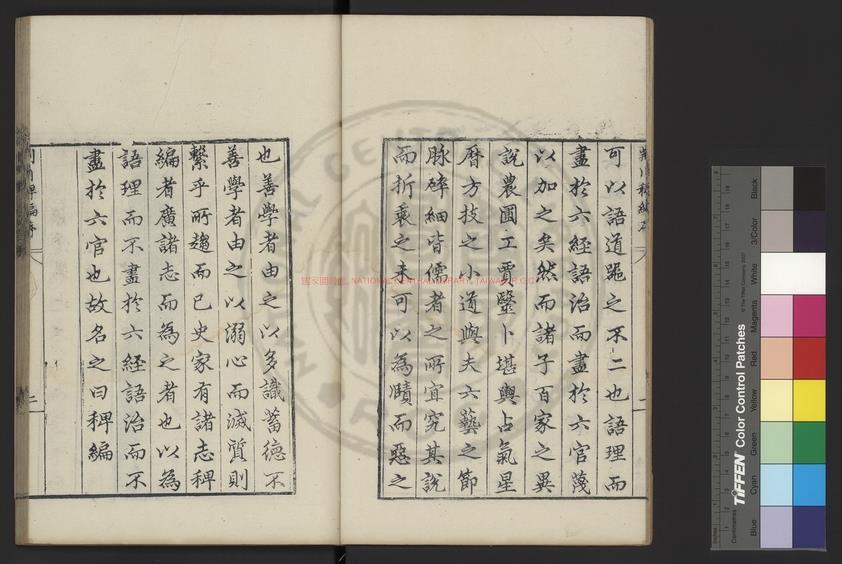 可以語道噐之不二也語理而
盡於六經語治而盡於六官蔑
以加之矣然而諸子百家之異
說農圃工賈毉卜堪輿占氣星
曆方技之小道與夫六藝之節
脉碎細皆儒者之所宜究其說
而折衷之未可以為賾而惡之
也善學者由之以多識蓄德不
善學者由之以溺心而滅質則
繫乎所趨而已史家有諸志稗
編者廣諸志而為之者也以為
語理而不盡於六經語治而不
盡於六官也故名之曰稗編
二
國家圖書館, NATIONAL CENTRAL LIBRARY, TAIWAN, R.O.C
TIFFEN Color Control Patches
Blue
Cyan
Green
Yellow
Red
Magenta
White
3/Color
Black
Centimetres
Inches